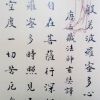 般若波羅蜜多心
唐三藏法師玄奘譯
自在菩薩行深
羅蜜多時照見
空度一切苦厄